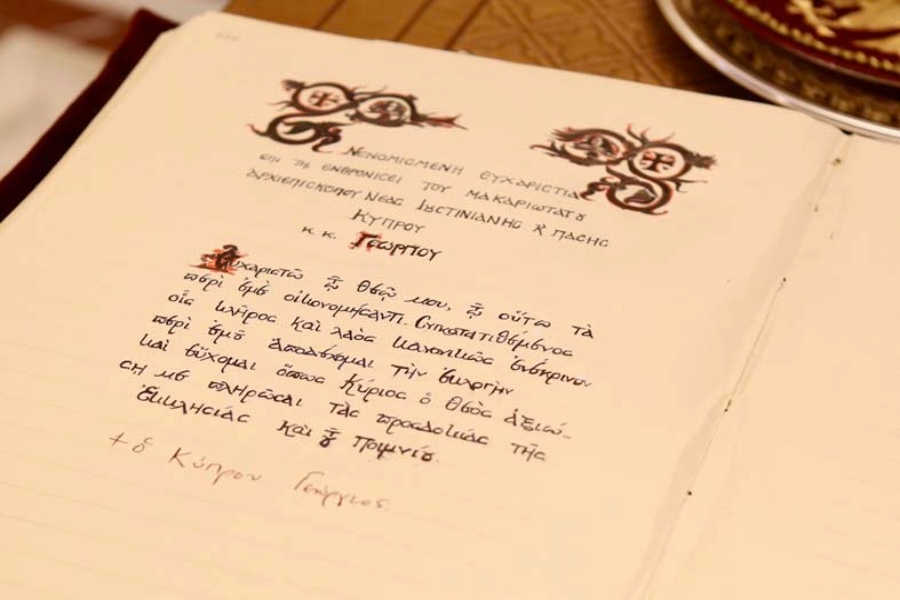 ΝΕΝΟΜΙΣΜΕΝΗ ΕΥΧΑΡΙΣΤΙΑ
ΕΠΙ ΤΗ ΕΝΘΡΟΝΙΣΕΙ ΤΟΥ ΜΑΚΑΡΙΩΤΑΤΟΥ
ΑΡΧΙΕΠΙΣΚΟΠΟΥ ΝΕΑΣ ΙΟΥΣΤΙΝΙΑΝΗΣ Κ ΠΑΣΗΣ
ΚΥΠΡΟΥ
κ.κ. ΓΕΩΡΓΙΟΥ
Εὐχαριστῶ τῷ Θεῷ μου, τῷ οὕτω τὰ
περὶ ἐμὲ οἰκονομήσαντι. Συγκατατιθέμενος
οἷς κλῆρος καὶ λαὸς κανονικῶς ἐνέκρινον
περὶ ἐμοῦ ἀποδέχομαι τὴν ἐκλογὴν
καὶ εὔχομαι ὅπως Κύριος ὁ Θεὸς ἀξιώ-
σῃ με πληρῶσαι τὰς προσδοκίας τῆς
Ἐκκλησίας καὶ τοῦ Ποιμνίου.
+ ὁ Κύπρου Γεώργιος